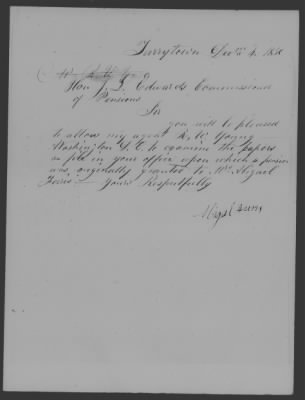 Tarrytown Decr. 4. 1850
Hon J. L. Edwards Commissioner
of Pensions
Sir
you will be pleased
to allow my agent R. W. Young
Washington D. C. to examine the papers
on file in your office upon which a pension
was originally granted to Mrs. Abigael
Ferris. Yours Respectfully
Abigal Ferris